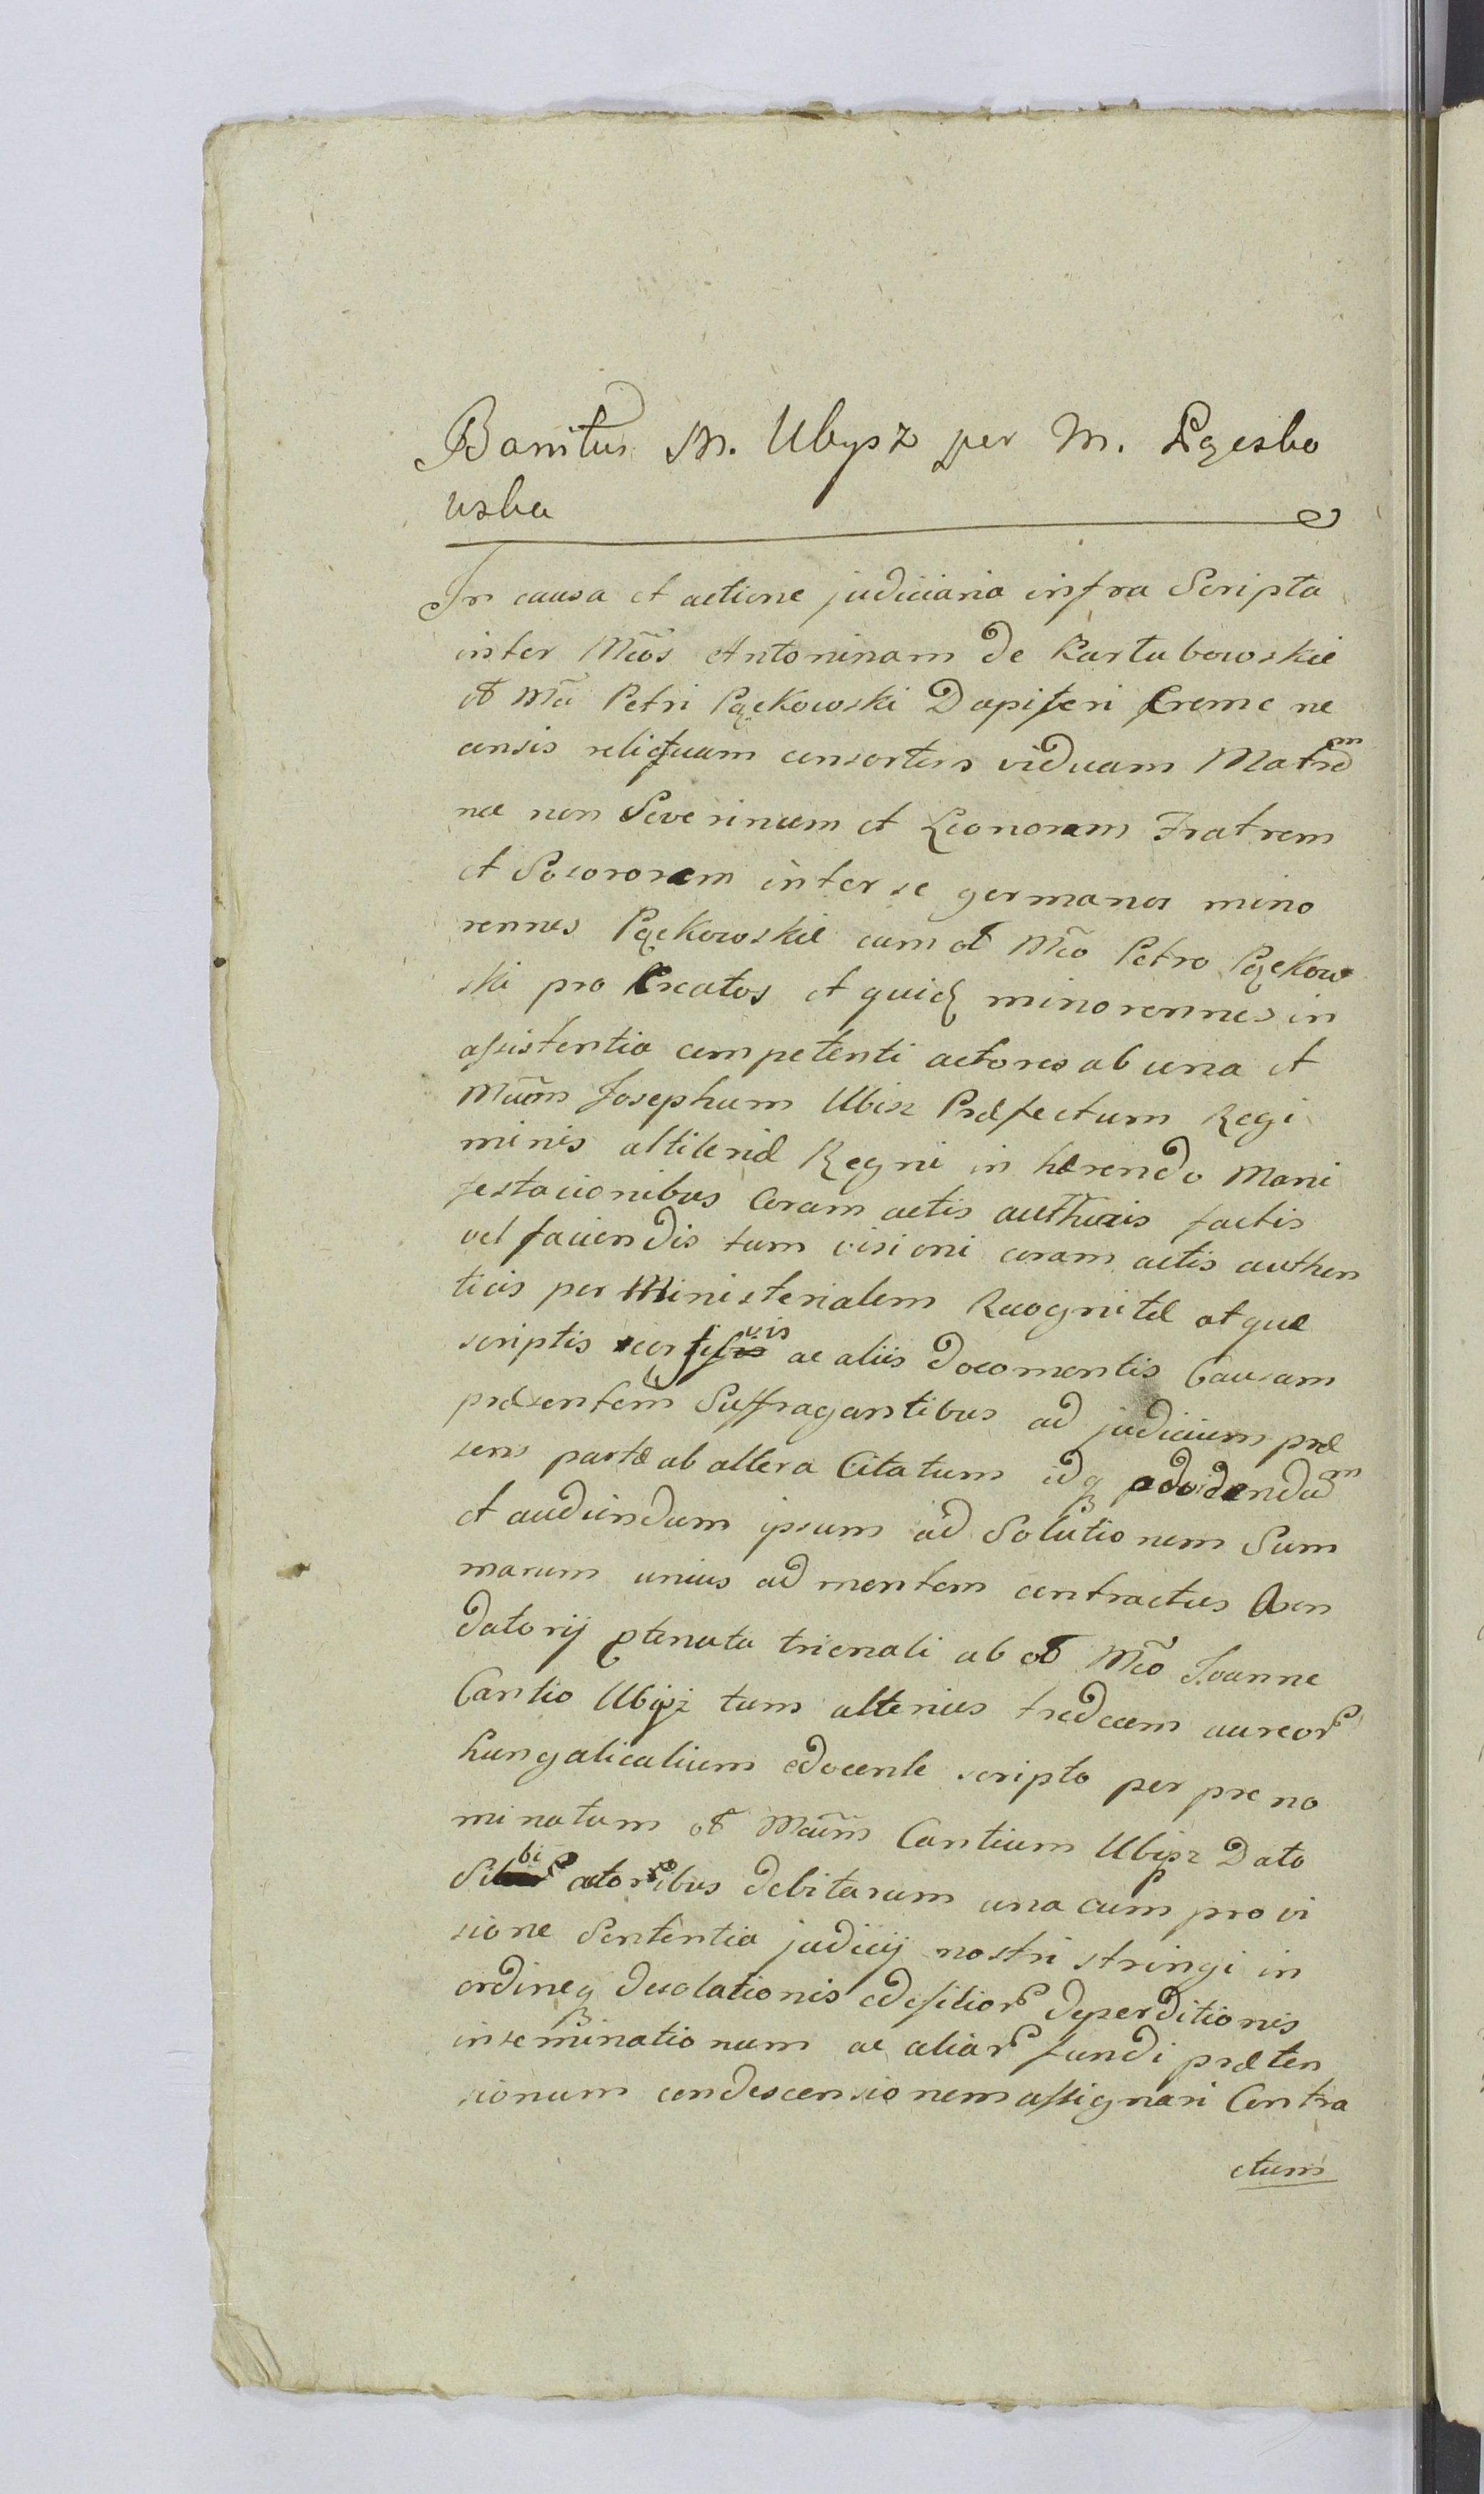 Banitus M. Ubysz per M. Pqcsko
wska
In causa et actione judiciaria infra Scripta
inter Mc̃os Antoninam de Kartubowskie
ol Mc̃i Petri Pqckowski Dapiferi Creme ne
censis relictuam consortem viduam Matrem
nec non Severinum et Leonoram Fratrem
et Socororem inter se germanos mino
rennes Pqckowskie cum ol Mc̃o Petro Pqckow
ski pro Creatos et quidq minorennes in
assistentia competenti actores ab una et
Mcum̃ Josephum Ubisz Præfectum Regi
minis altileriæ Regni in hærendo Mani
festacionibus Coram actis authcis factis
vel faciendis tum visioni coram actis authen
ticis per Ministerialem Recognitæ atque
scriptis ac aliis Docomentis Causam
præsentem Suffragantibus ad judicium præ
sens parte ab altera Citatum idq advidendum
et audiendum ipsum ad Solutionem Sum
marum unius ad mentem contractus Aren
datorij ptenuta trienali ab ol Mc̃o Joanne
Cantio Ubysz tum alterius tredecem aureor
hungalicalium edocente scripto per pre no
minatum ol Mcum̃ Cantium Ubysz Dato
Sibi actoribus debitarum una cum pro vi
sione Sententia judicij nostri stringi in
ordineq desolationis ædifitior deperditionis
inseminationum ac aliar fundi præten
sionum condescensionem assignari Contra
ctum